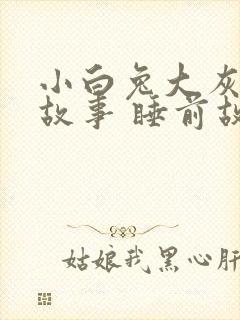 小白兔大灰
故事 睡前故
姑娘我黑心肝